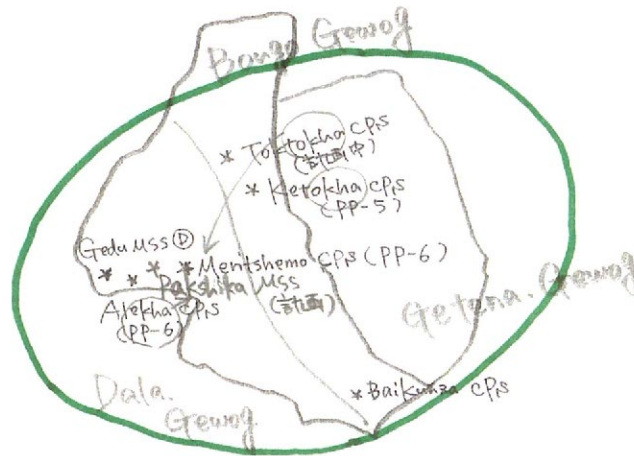 Bongo Gewog
* Toktokha CPS
(計画中)
* Ketokha CPS
(PP-5)
Gedu MSS Ⓓ
* * * * Mentshemo CPS (PP-6)
Pakshika MSS
(計画)
Alekha CPS
(PP-6)
Getena. Gewog
* Baikunza CPS
Dala.
Gewog